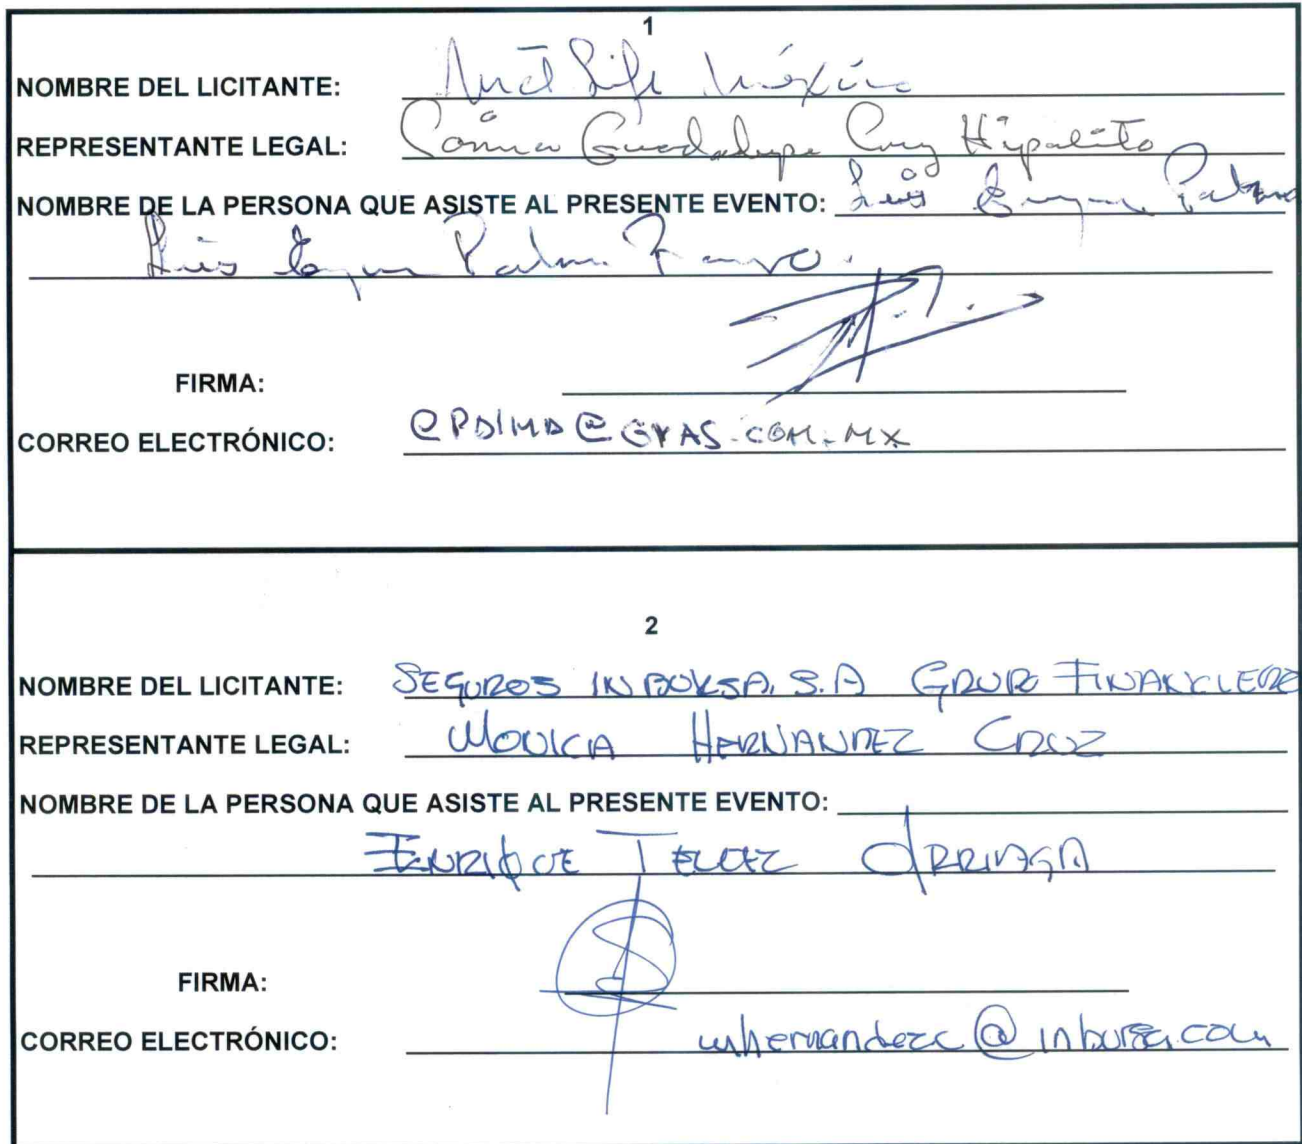 1
NOMBRE DEL LICITANTE: Met Life México
REPRESENTANTE LEGAL: Guadalupe Cruz Hipolito
NOMBRE DE LA PERSONA QUE ASISTE AL PRESENTE EVENTO: Luis Palma
Luis Palma
FIRMA:
CORREO ELECTRÓNICO:
2
NOMBRE DEL LICITANTE: SEGUROS INBURSA, S.A GRUPO FINANCIERO
REPRESENTANTE LEGAL: MONICA HERNANDEZ CRUZ
NOMBRE DE LA PERSONA QUE ASISTE AL PRESENTE EVENTO:
ENRIQUE TELLEZ ARRIAGA
FIRMA:
CORREO ELECTRÓNICO: mhernandezc@inbursa.com